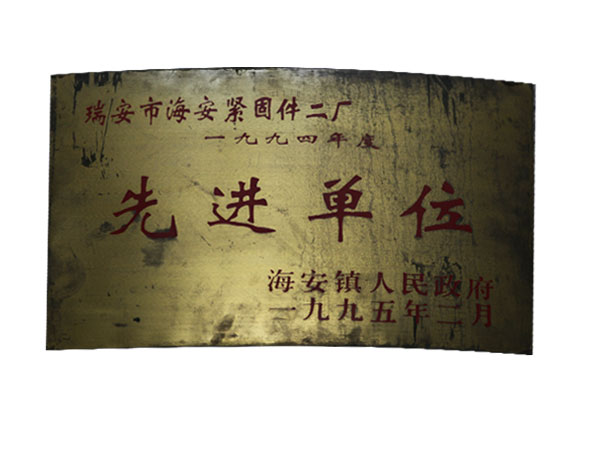 瑞安市海安紧固件二厂
一九九四年度
先进单位
海安镇人民政府
一九九五年二月